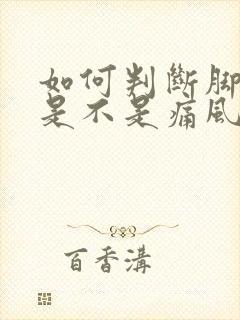 如何判斷腳
是不是痛風
百香溝